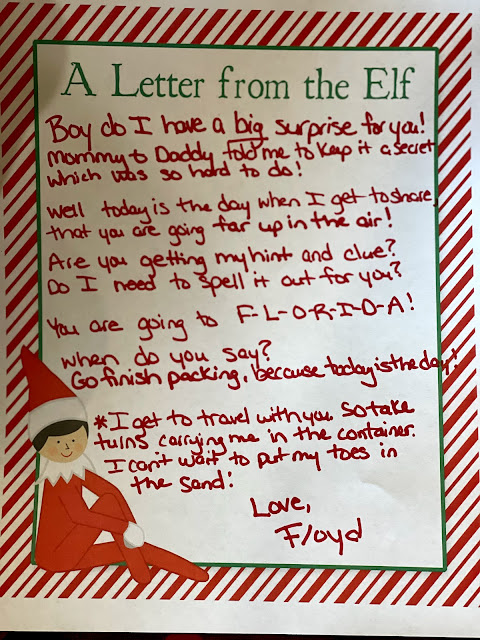 A Letter from the Elf
Boy do I have a big surprise for you!
Mommy & Daddy told me to keep it a secret
which was so hard to do!
Well today is the day when I get to share
that you are going far up in the air!
Are you getting my hint and clue?
Do I need to spell it out for you?
You are going to F-L-O-R-I-D-A!
When do you say?
Go finish packing, because today is the day!
*I get to travel with you so take
turns carrying me in the container.
I can't wait to put my toes in
the sand!
Love,
Floyd